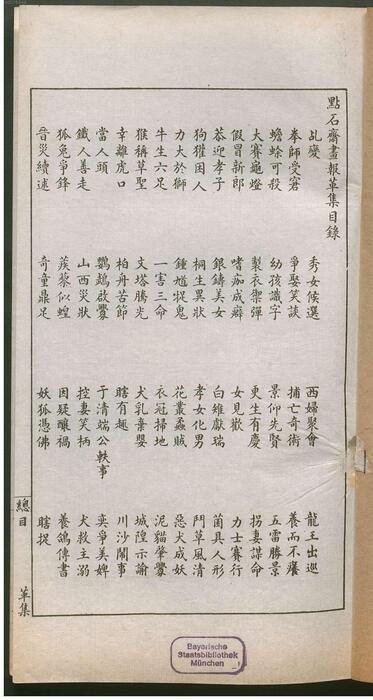 點石齋畫報革集目錄
乩變 秀女候選 西婦聚會 龍王出巡
拳師受窘 爭娶笑談 捕亡奇術 養而不癢
蟾蜍可殺 幼孩識字 景仰先賢 五雷勝景
大賽龜燈 製衣禦彈 更生有慶 拐妻謀命
假冒新郎 嗜痂成癖 女見歡 力士賽行
恭迎孝子 銀鑄美女 白雉獻瑞 菌具人形
狗獾困人 桐生異狀 孝女化男 鬥草風清
力大於獅 鍾馗捉鬼 花叢蟊賊 惡犬成妖
牛生六足 一害三命 衣冠掃地 泥貓肇釁
猴稱草聖 文塔騰光 犬乳棄嬰 城隍示諭
幸離虎口 柏舟苦節 瞎有趣 川沙鬧事
當人頭 鸚鵡啟釁 于清端公軼事 奕爭美婢
鐵人善走 山西災狀 控妻笑柄 犬救主溺
狐兔爭鋒 蒺藜似蝗 因疑釀禍 養鴿傳書
晉災續述 奇童鼎足 妖狐憑佛 瞎捉
總目 革集
Bayerische
Staatsbibliothek
München